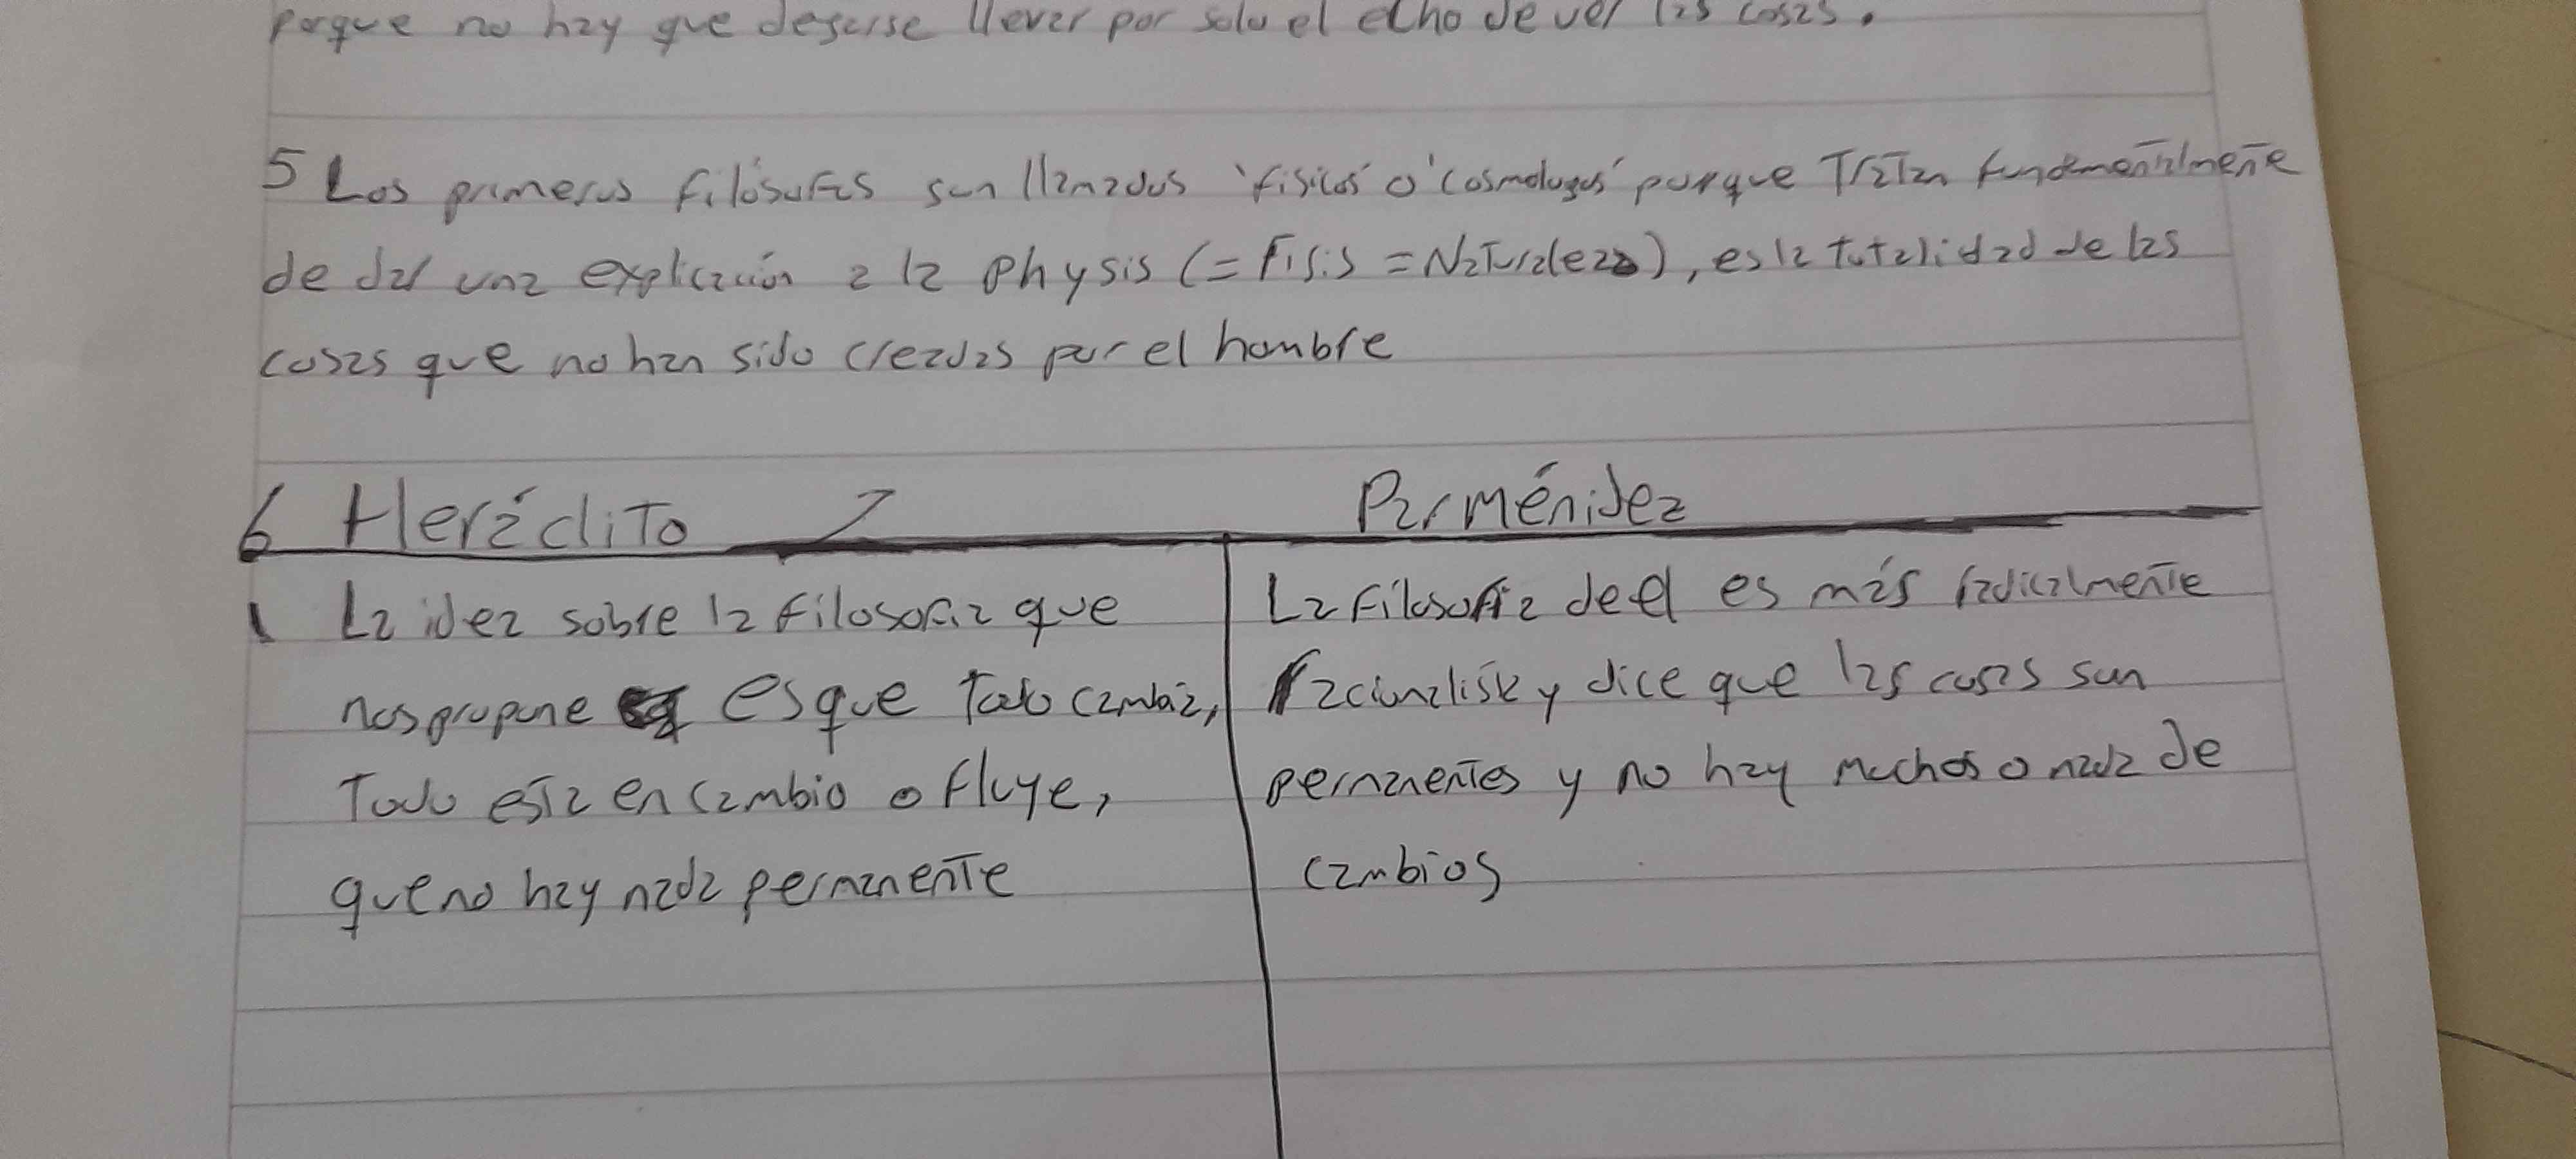 porque no hay que degarse llevar por solo el echo de ver las cosas.
5 Los primeros filósofos son llamados 'fisicos' o 'cosmologos' porque Tratan fundamentalmente
de dar una explicación a la physis (= Fisis = Naturaleza), es la totalidad de las
cosas que no han sido creadas por el hombre
6 Heráclito
Parménidez
1 La idea sobre la filosofia que
nos propone es que Todo cambia,
Todo esta en cambio o fluye,
que no hay nada permanente
La filosofia de el es más radicalmente
racionalista y dice que las cosas son
permanentes y no hay muchos o nada de
cambios